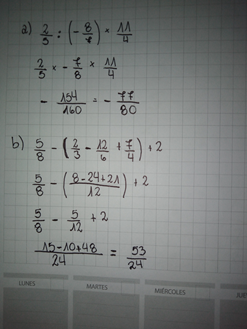 a) 2/5 : (-8/7) · 11/4
2/5 × -7/8 × 11/4
- 154/160 = - 77/80
b) 5/8 - (2/3 - 12/6 + 7/4) + 2
5/8 - (8-24+21/12) + 2
5/8 - 5/12 + 2
15-10+48/24 = 53/24
LUNES MARTES MIÉRCOLES JU